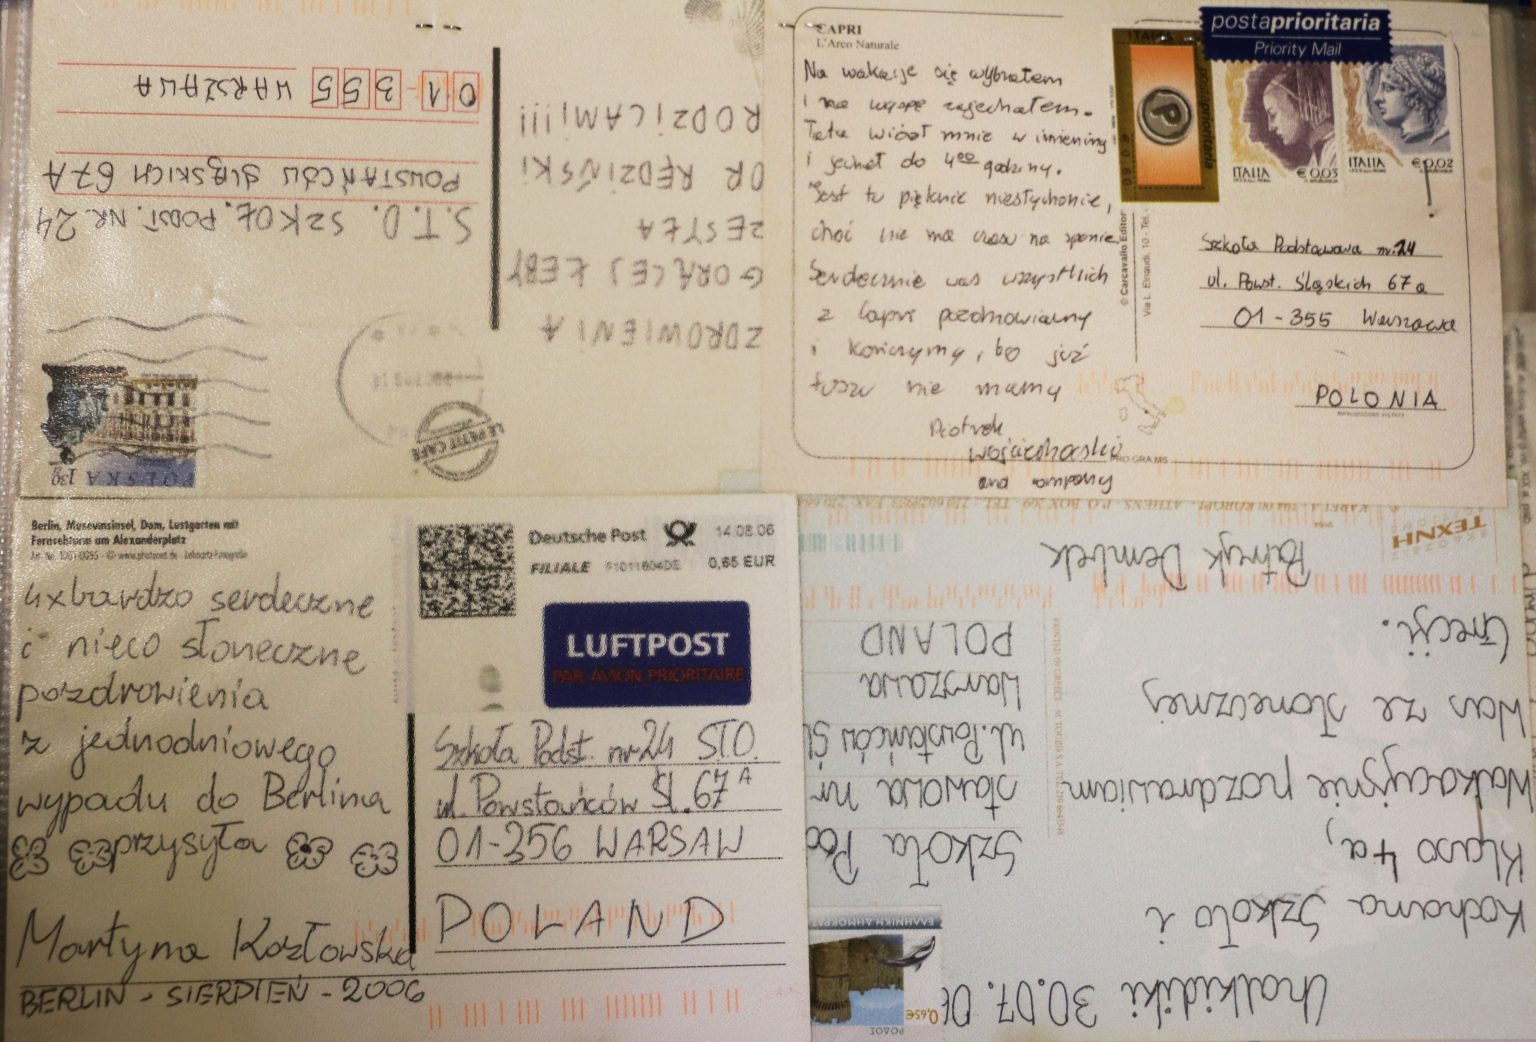 ZDROWIENIA
GORĄCEJ ŁEBY
ZESYŁA
DR RĘDZIŃSKI
RODZICAMI!!!
POLSKA 1,30
LE PETIT CAFE
S.T.O. SZKOŁ. PODST. NR 24
POWSTAŃCÓW ŚLĄSKICH 67A
01-355 WARSZAWA
CAPRI
L'Arco Naturale
Na wakacje się wybrałem
i na wyspę zajechałem.
Tata wiózł mnie w imieniny
i jechał do 4⁰⁰ godziny.
Jest tu pięknie niesłychanie,
choć nie ma czasu na spanie.
Serdecznie was wszystkich
z Capri pozdrawiamy
i kończymy, bo już
tuszu nie mamy
Piotrek
Wojciechowski
and company
© Carcavallo Editore
Via L. Einaudi, 10 - Tel.
postaprioritaria
Priority Mail
ITALIA
postaprioritaria
ITALIA € 0,03
ITALIA € 0,02
Szkoła Podstawowa nr 24
ul. Powst. Śląskich 67a
01-355 Warszawa
POLONIA
Berlin, Museumsinsel, Dom, Lustgarten mit
Fernsehturm am Alexanderplatz
4xbardzo serdeczne
i nieco słoneczne
pozdrowienia
z jednodniowego
wypadu do Berlina
przysyła
Martyna Kozłowska
BERLIN - SIERPIEŃ - 2006
Deutsche Post 14.08.06
FILIALE 0,65 EUR
LUFTPOST
PAR AVION PRIORITAIRE
Szkoła Podst. nr 24 STO.
ul. Powstańców Śl. 67A
01-356 WARSAW
POLAND
Chalkidiki 30.07.06
Kochana Szkoło i
Klaso 4a,
Wakacyjnie pozdrawiam
Was ze słonecznej
Grecji.
Patryk Dembek
ΡΟΔΟΣ
0,65€
ΕΛΛΗΝΙΚΗ ΔΗΜΟΚΡΑΤ
Szkoła Pod
stawowa nr
ul. Powstańców Śl
Warszawa
POLAND
ΤΕΧΝΗ